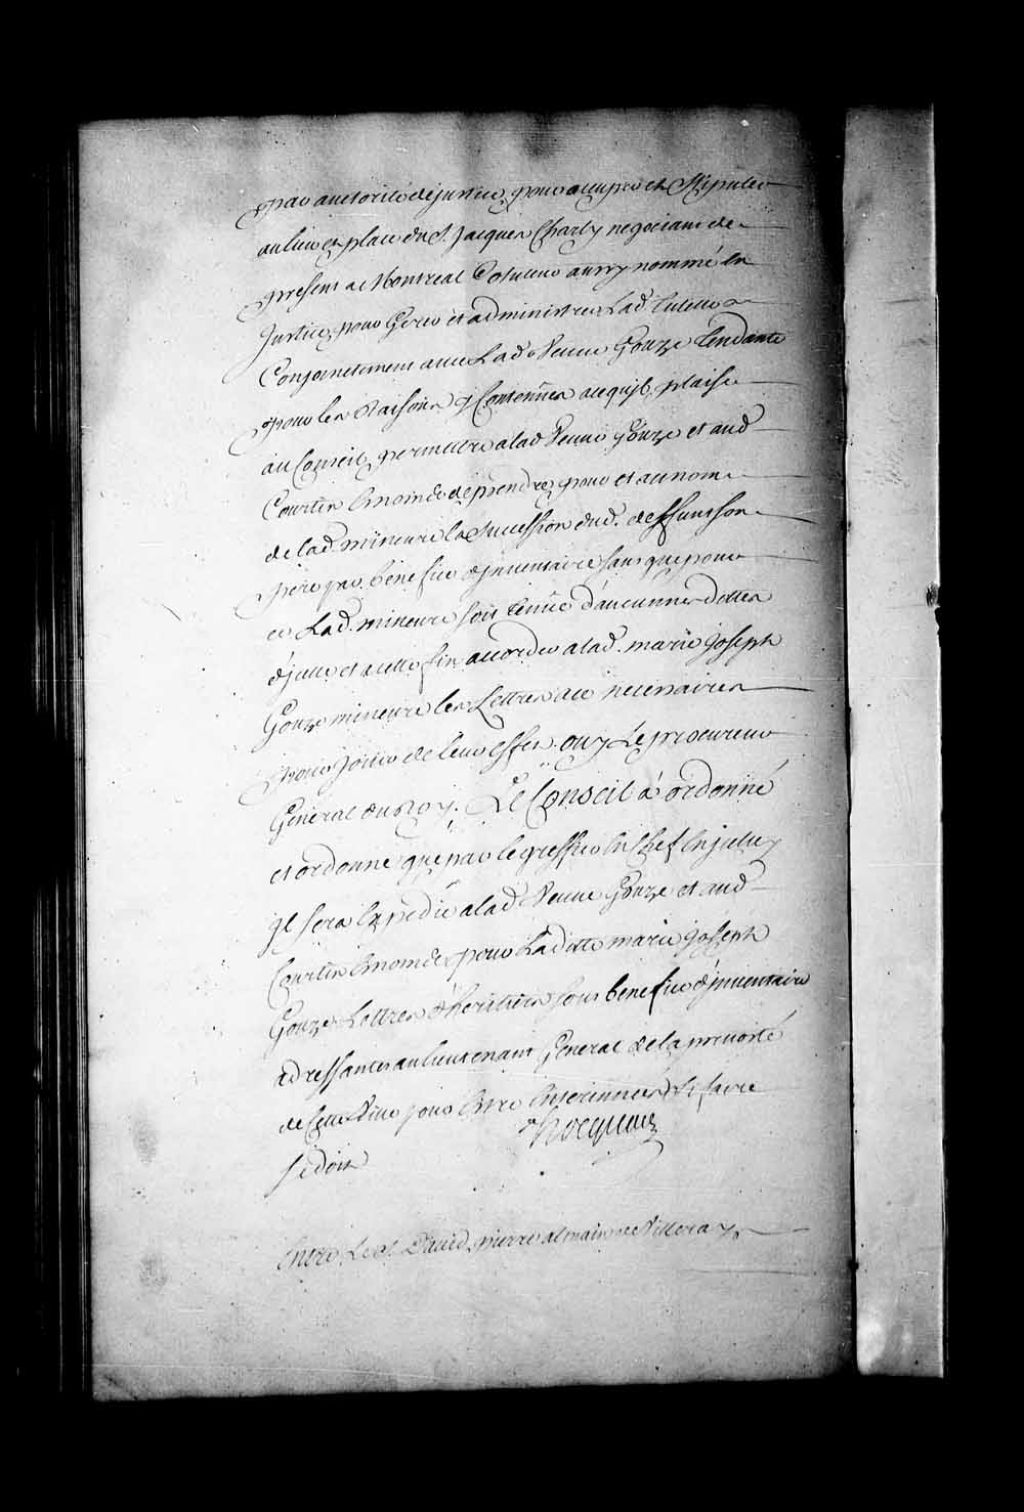 par auctorité de justice, pour occuper et stipuler
au lieu et place du S. Jacques Charly negociant de
present a Montreal Tuteur aussy nommé en
Justice, pour Gerer et administrer Lad. tutelle
Conjointement avec Lad. Veuve Gouze tendante
pour les Raisons y Contenües a ce qu'jl plaise
au Conseil, permettre a lad Veuve Gouze et aud
Courtin Esnoms de prendre, pour et au nom
de lad. mineure la Succession dud. deffunt son
pere par benefice d'jnventaire sans que pour
ce Lad. mineure soit tenüe d'aucunnes dettes
d'jcelle et a cette fin accorder a lad. marie joseph
Gouze mineure les Lettres a ce necessaires
pour jouir de leur effet. ouy Le procureur
General du Roy. Le Conseil à ordonné
et ordonne que par le greffier En Chef En jceluy
jl sera Expedié a lad Veuve Gouze et aud
Courtin Esnoms pour Laditte marie joseph
Gouze Lettres d'heritiere sous benefice d'jnventaire
adressantes au lieutenant General de la prevosté
de Cette Ville pour Estre Enterinnées si faire
se doit
Hocquart
Entre Le S. David pierre de Villeray